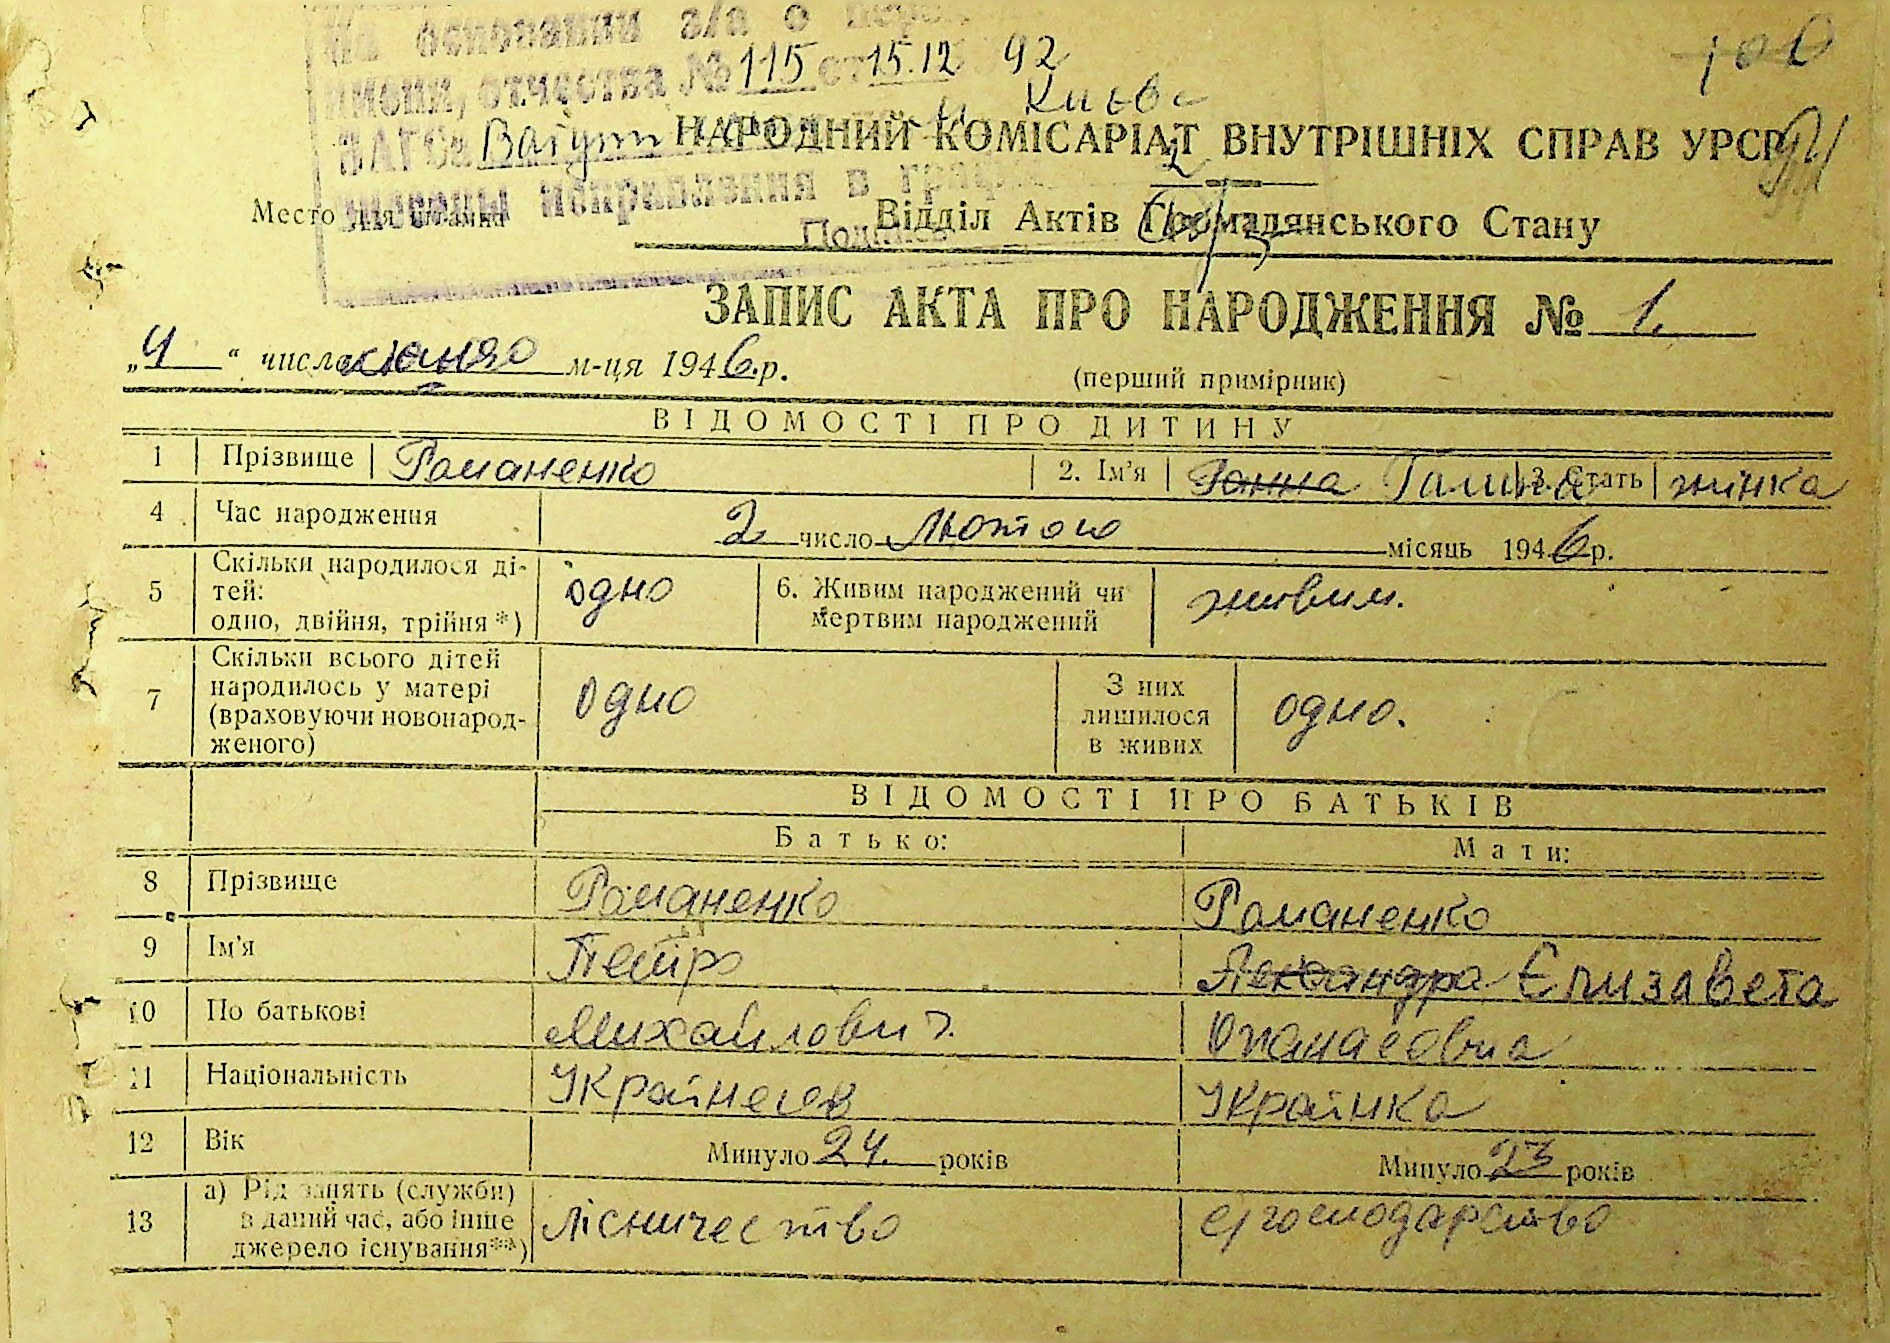 На основании з/а о
имени, отчества № 115 от 15.12 92
ЗАГСа Ватут м Києва
НАРОДНИЙ КОМІСАРІАТ ВНУТРІШНІХ СПРАВ УРСР
внесены исправления в граф
Место для штампа
Відділ Актів Громадянського Стану
Подпись
ЗАПИС АКТА ПРО НАРОДЖЕННЯ № 1.
„4“ числа м-ця 1946.р.
(перший примірник)
ВІДОМОСТІ ПРО ДИТИНУ
1 Прізвище Романенко 2. Ім'я Ганна Галина 3. Стать жінка
4 Час народження 2 число Лютого місяць 1946 р.
5 Скільки народилося ді-
тей:
одно, двійня, трійня*) одно 6. Живим народжений чи
мертвим народжений живим.
7 Скільки всього дітей
народилось у матері
(враховуючи новонарод-
женого) одно З них
лишилося
в живих одно.
ВІДОМОСТІ ПРО БАТЬКІВ
Батько: Мати:
8 Прізвище Романенко Романенко
9 Ім'я Петро Єлизавета
10 По батькові Михайлович. Опанасовна
11 Національність Українка
12 Вік Минуло 24. років Минуло 23 років
13 а) Рід занять (служби)
в даний час, або інше
джерело існування**) лісничество с/господарство